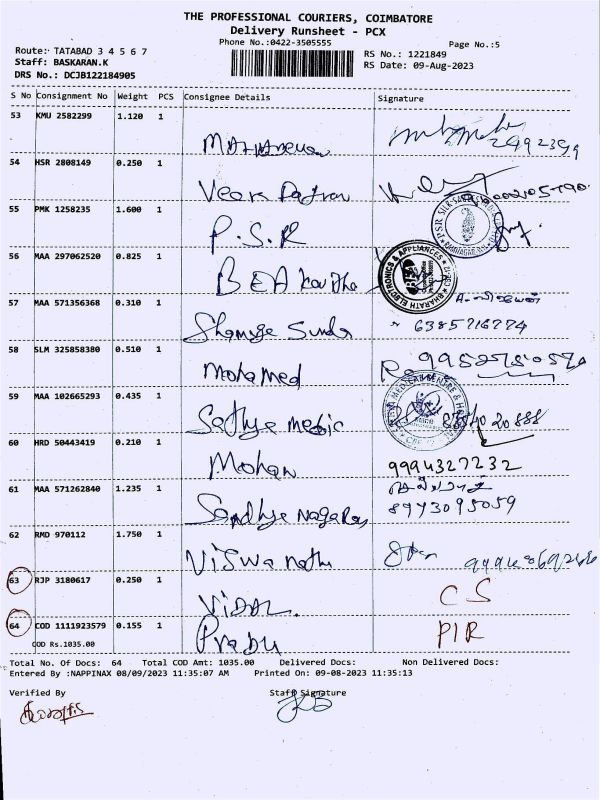 THE PROFESSIONAL COURIERS, COIMBATORE
Delivery Runsheet - PCX
Phone No.:0422-3505555
Page No.:5
Route: TATABAD 3 4 5 6 7
RS No.: 1221849
Staff: BASKARAN.K
RS Date: 09-Aug-2023
DRS No.: DCJB122184905
S No Consignment No Weight PCS Consignee Details Signature
53 KMU 2582299 1.120 1
54 HSR 2808149 0.250 1
55 PMK 1258235 1.600 1 P.S.R
56 MAA 297062520 0.825 1
57 MAA 571356368 0.310 1 6385716774
58 SLM 325858380 0.510 1 Mohamed
59 MAA 102665293 0.435 1 Sathya medic
60 HRD 50443419 0.210 1 Mohan 9994327232
61 MAA 571262840 1.235 1 8973095059
62 RMD 970112 1.750 1 Viswa nath
63 RJP 3180617 0.250 1 CS
64 COD 1111923579 0.155 1 Prabu PIR
COD Rs.1035.00
Total No. Of Docs: 64 Total COD Amt: 1035.00 Delivered Docs: Non Delivered Docs:
Entered By :NAPPINAX 08/09/2023 11:35:07 AM Printed On: 09-08-2023 11:35:13
Verified By Staff Signature